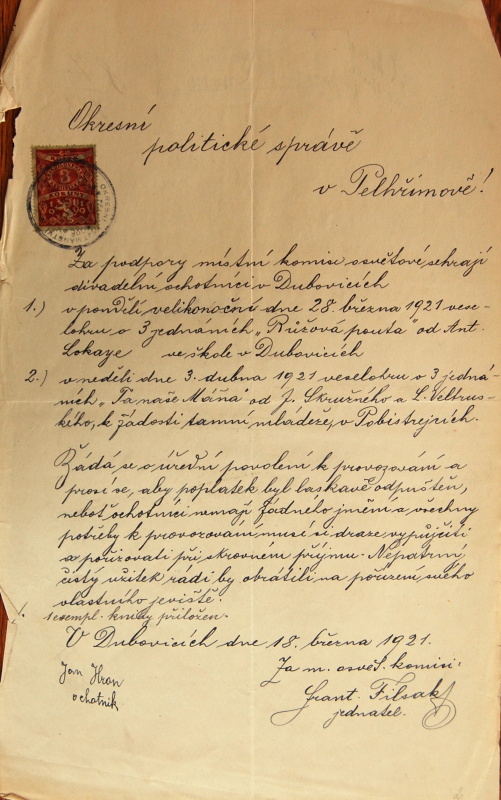 Okresní
politické správě
v Pelhřimově!
3
Za podpory místní komise osvětové, sehrají
divadelní ochotníci v Dubovicích
1.) v pondělí velikonoční dne 28. března 1921 vese-
lohru o 3 jednáních „Růžová pouta" od Ant.
Lokaye ve škole v Dubovicích
2.) v neděli dne 3. dubna 1921 veselohru o 3 jedná-
ních „Ta naše Mána" od J. Skružného a L. Veltrus-
kého, k žádosti tamní mládeže, v Pobistrejcích.
Žádá se o úřední povolení k provozování a
prosí se, aby poplatek byl laskavě odpuštěn,
neboť ochotníci nemají žádného jmění a všechny
potřeby k provozování musí si draze vypůjčiti
a pořizovati při skrovném příjmu. Nepatrný
čistý užitek rádi by obrátili na pořízení svého
vlastního jeviště.
1 exempl. knihy přiložen.
V Dubovicích dne 18. března 1921.
Za m. osvět. komisi:
Jan Hron
ochotník
Frant. Filsak
jednatel.